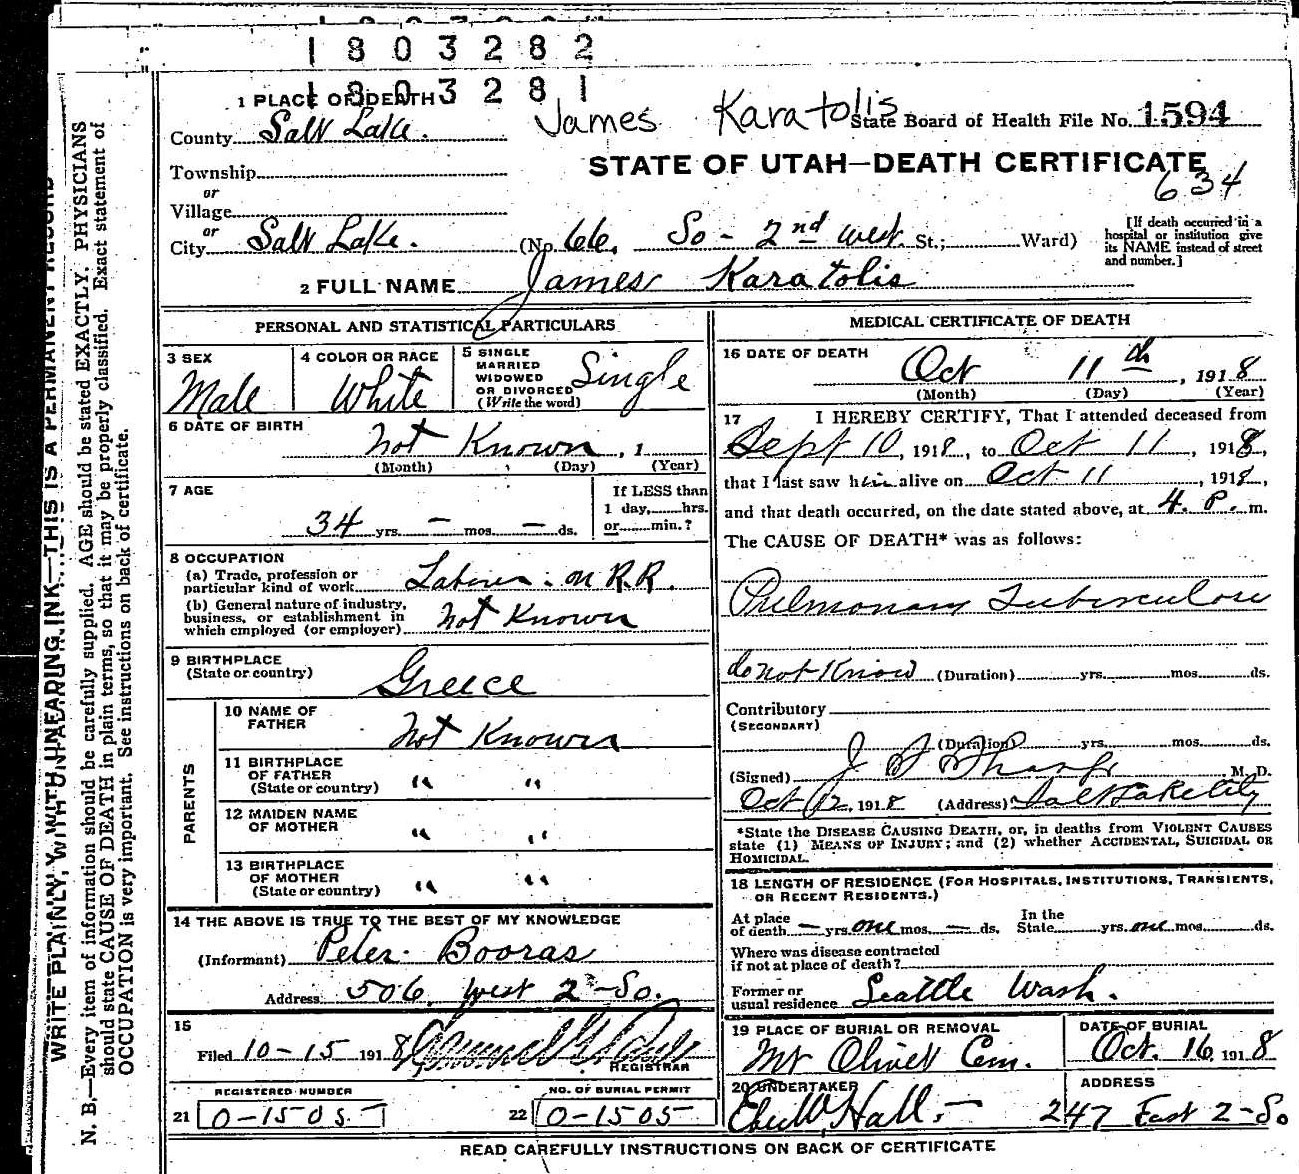 1803282
1803281
1 PLACE OF DEATH
James Karatolis
County Salt Lake. State Board of Health File No. 1594
STATE OF UTAH—DEATH CERTIFICATE
634
Township
or
Village
or
City Salt Lake. (No 66. So - 2nd West. St.; Ward)
[If death occurred in a
hospital or institution give
its NAME instead of street
and number.]
2 FULL NAME James Karatolis
PERSONAL AND STATISTICAL PARTICULARS
3 SEX
Male
4 COLOR OR RACE
White
5 SINGLE
MARRIED
WIDOWED
OR DIVORCED
(Write the word)
Single
6 DATE OF BIRTH
Not Known, 1
(Month) (Day) (Year)
7 AGE
34 yrs. — mos. — ds.
If LESS than
1 day, hrs.
or min.?
8 OCCUPATION
(a) Trade, profession or
particular kind of work Laborer. on R.R.
(b) General nature of industry,
business, or establishment in
which employed (or employer) Not Known
9 BIRTHPLACE
(State or country) Greece
PARENTS
10 NAME OF
FATHER Not Known
11 BIRTHPLACE
OF FATHER
(State or country) " "
12 MAIDEN NAME
OF MOTHER " "
13 BIRTHPLACE
OF MOTHER
(State or country) " "
14 THE ABOVE IS TRUE TO THE BEST OF MY KNOWLEDGE
(Informant) Peter Booras
Address 506. West 2-So.
15
Filed 10-15 1918
REGISTRAR
REGISTERED NUMBER
21 0-1505-
NO. OF BURIAL PERMIT
22 0-1505
MEDICAL CERTIFICATE OF DEATH
16 DATE OF DEATH
Oct 11th, 1918
(Month) (Day) (Year)
17 I HEREBY CERTIFY, That I attended deceased from
Sept 10, 1918, to Oct 11, 1918,
that I last saw him alive on Oct 11, 1918,
and that death occurred, on the date stated above, at 4. P. m.
The CAUSE OF DEATH* was as follows:
Pulmonary Tuberculosis
do not Know (Duration) yrs. mos. ds.
Contributory
(SECONDARY)
(Duration) yrs. mos. ds.
(Signed) J F Sharp M. D.
Oct 12, 1918 (Address) Salt Lake City
*State the DISEASE CAUSING DEATH, or, in deaths from VIOLENT CAUSES
state (1) MEANS OF INJURY; and (2) whether ACCIDENTAL, SUICIDAL OR
HOMICIDAL.
18 LENGTH OF RESIDENCE (FOR HOSPITALS, INSTITUTIONS, TRANSIENTS,
OR RECENT RESIDENTS.)
At place
of death — yrs one mos. — ds. In the
State yrs. one mos. ds.
Where was disease contracted
if not at place of death?
Former or
usual residence Seattle Wash.
19 PLACE OF BURIAL OR REMOVAL
Mt Olivet Cem.
DATE OF BURIAL
Oct. 16, 1918
20 UNDERTAKER
Eber W. Hall. —
ADDRESS
247 East 2-So
READ CAREFULLY INSTRUCTIONS ON BACK OF CERTIFICATE
WRITE PLAINLY, WITH UNFADING INK—THIS IS A PERMANENT RECORD
N. B.—Every item of information should be carefully supplied. AGE should be stated EXACTLY. PHYSICIANS
should state CAUSE OF DEATH in plain terms, so that it may be properly classified. Exact statement of
OCCUPATION is very important. See instructions on back of certificate.